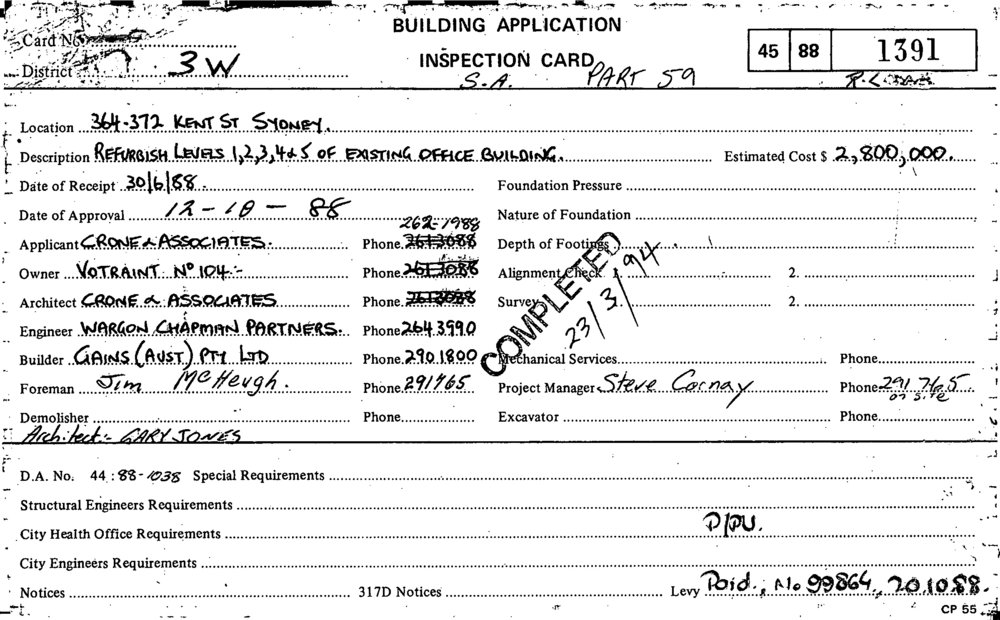 BUILDING APPLICATION
Card No.
INSPECTION CARD 45 88 1391
District 3W S.A. PART 59
Location 364-372 KENT ST SYDNEY.
Description REFURBISH LEVELS 1,2,3,4 & 5 OF EXISTING OFFICE BUILDING. Estimated Cost $ 2,800,000.
Date of Receipt 30/6/88. Foundation Pressure
Date of Approval 12-10-88 Nature of Foundation
262-1988
Applicant CRONE & ASSOCIATES. Phone 2613088 Depth of Footings
Owner VOTRAINT Nº 104 :- Phone 2613088 Alignment Check 1. 2.
Architect CRONE & ASSOCIATES Phone 2613088 Survey 2.
COMPLETED 23/3/94
Engineer WARGON CHAPMAN PARTNERS. Phone 264 3990
Builder GAINS (AUST) PTY LTD Phone 290 1800 Mechanical Services Phone
Foreman Jim McHeugh. Phone 291765 Project Manager Steve Carnay Phone 291 765
on site
Demolisher Phone Excavator Phone
Architect:- GARY JONES
D.A. No. 44 : 88 - 1038 Special Requirements
Structural Engineers Requirements
City Health Office Requirements P/PU.
City Engineers Requirements
Notices 317D Notices Levy Paid. No 99864, 20.10.88.
CP 55